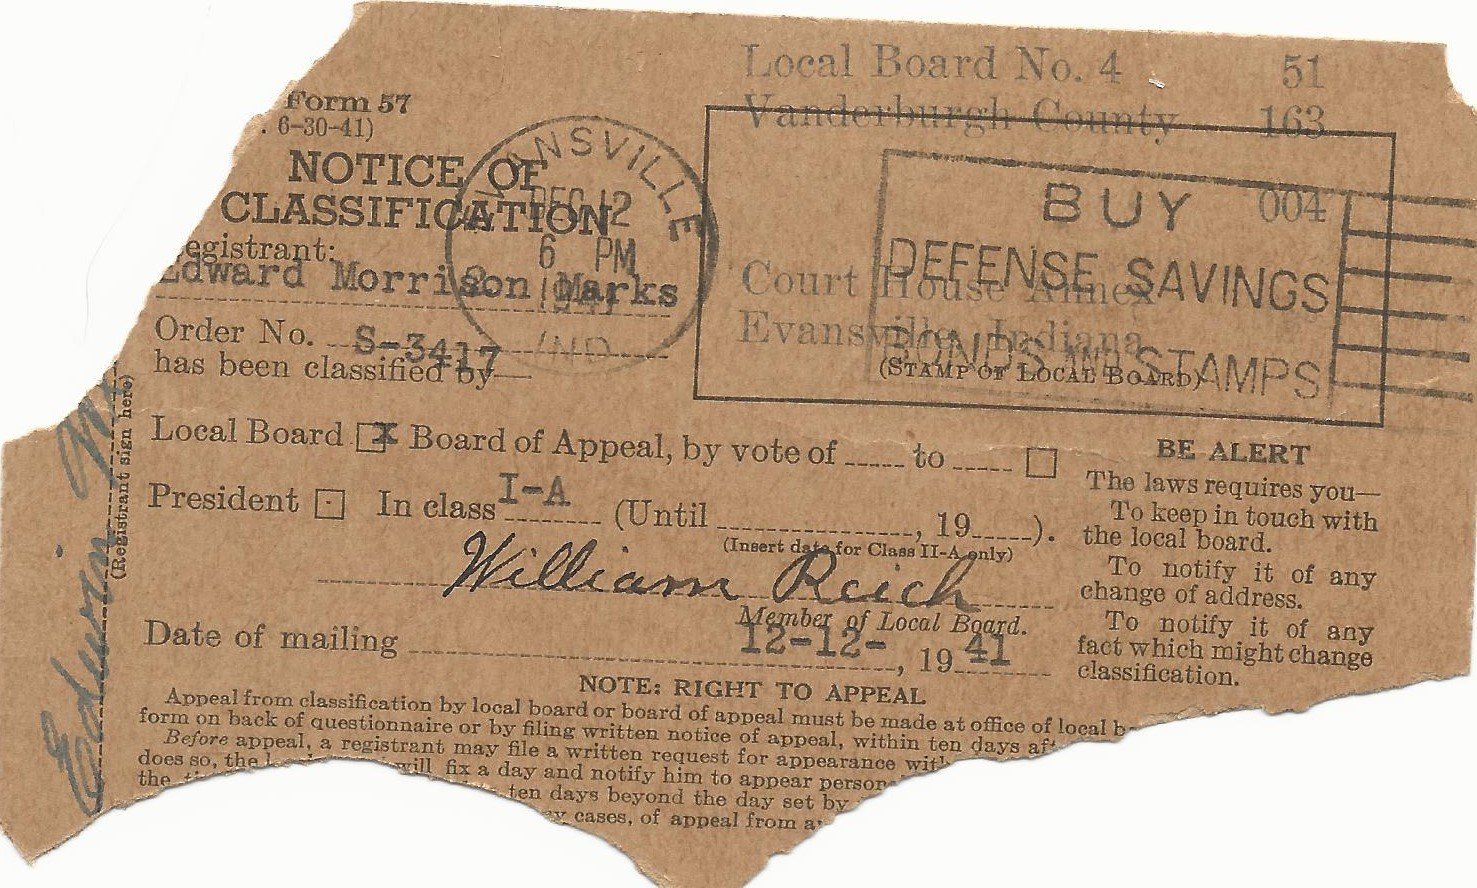 Local Board No. 4 51
Vanderburgh County 163
004
Court House Annex
Evansville, Indiana
(STAMP OF LOCAL BOARD)
Form 57
6-30-41)
NOTICE OF
CLASSIFICATION
egistrant:
Edward Morrison Marks
Order No. S-3417
has been classified by—
EVANSVILLE
DEC 12
6 PM
1941
IND
BUY
DEFENSE SAVINGS
BONDS AND STAMPS
Local Board X Board of Appeal, by vote of to
President In class I-A (Until , 19 ).
(Insert date for Class II-A only)
William Reich
Member of Local Board.
Date of mailing 12-12- , 19 41
BE ALERT
The laws requires you—
To keep in touch with
the local board.
To notify it of any
change of address.
To notify it of any
fact which might change
classification.
NOTE: RIGHT TO APPEAL
Appeal from classification by local board or board of appeal must be made at office of local b
form on back of questionnaire or by filing written notice of appeal, within ten days af
Before appeal, a registrant may file a written request for appearance with
does so, the will fix a day and notify him to appear person
the ten days beyond the day set by
cases, of appeal from a
Edwin
(Registrant sign here)